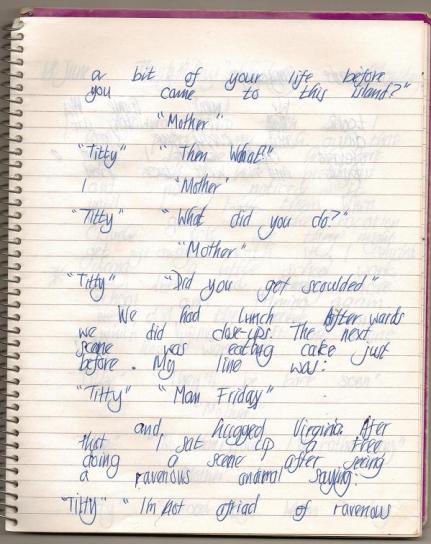 a bit of your life before
you came to this island?"
"Mother"
"Titty" "Then What?"
"Mother"
"Titty" "What did you do?"
"Mother"
"Titty" "Did you get scoulded"
We had lunch After wards
we did close-ups. The next
scene was eating cake just
before. My line was:
"Titty" "Man Friday"
and hugged Virginia After
that I sat up a tree
doing a scene after seeing
a ravenous animal saying:
"Titty" "Im not afriad of ravenous